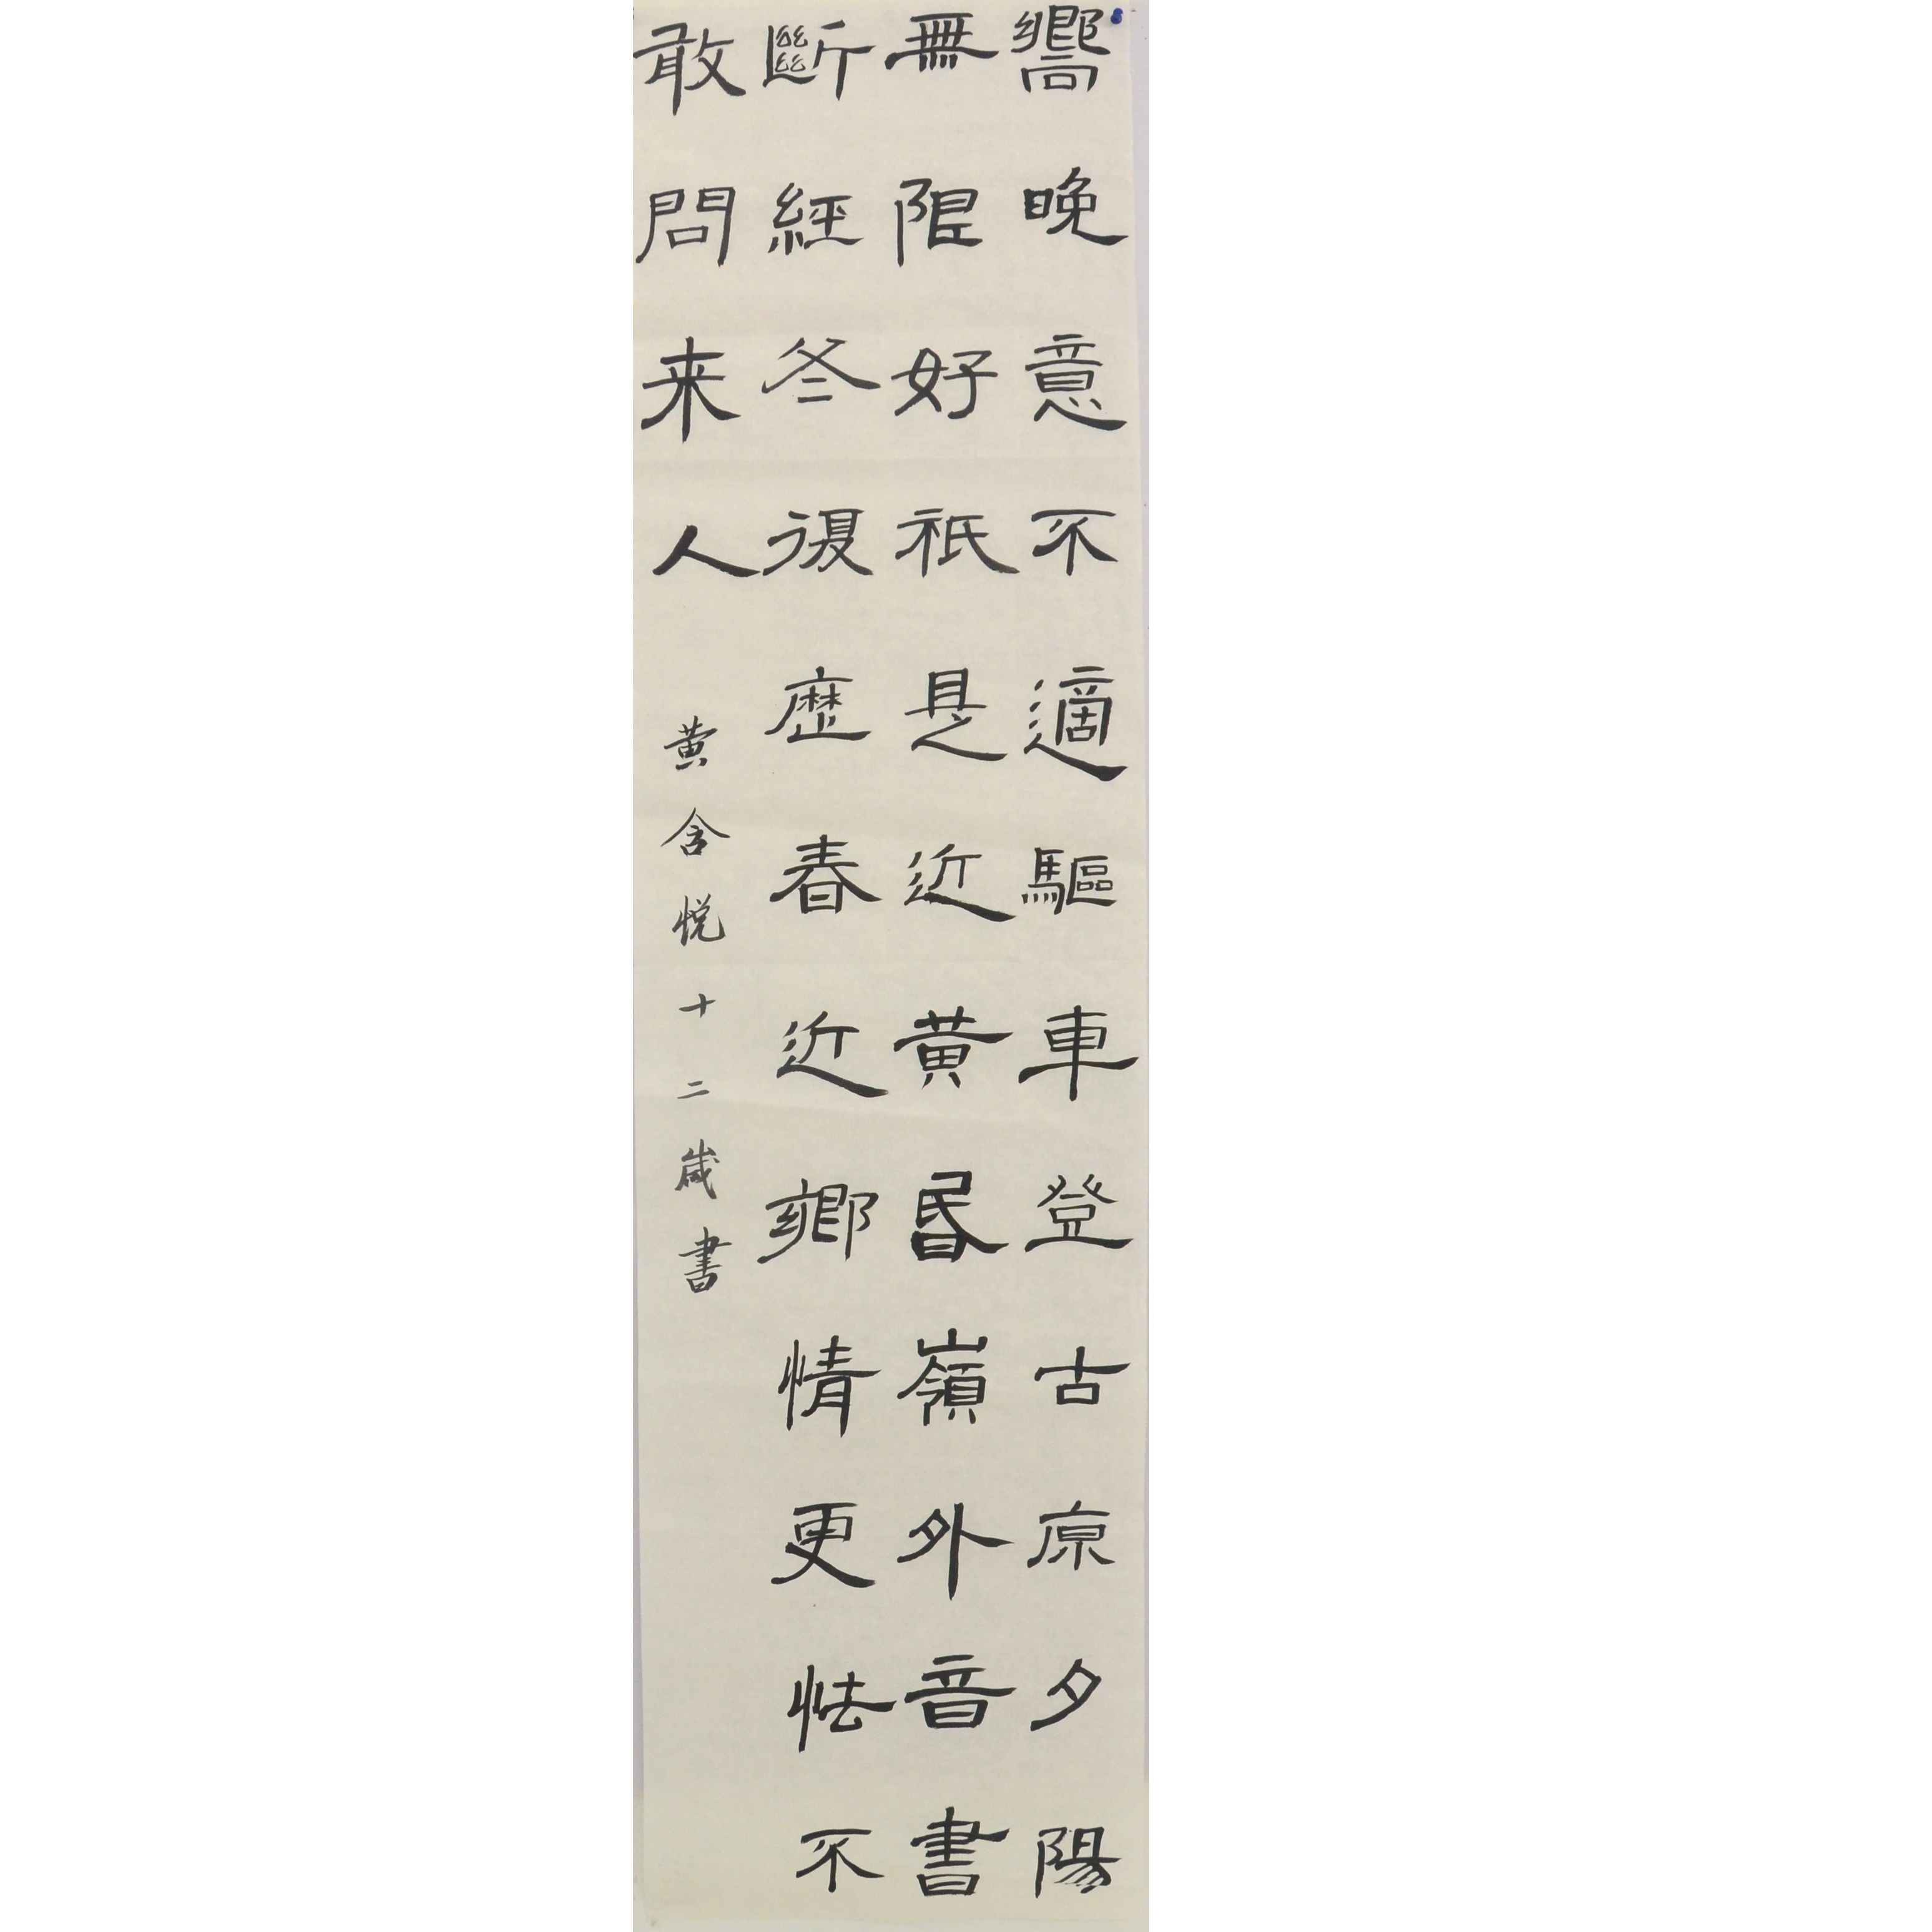 嚮晚意不適驅車登古原夕陽
無限好祇是近黄昏嶺外音書
斷經冬復歷春近鄉情更怯不
敢問来人
黄含悦十二歲書